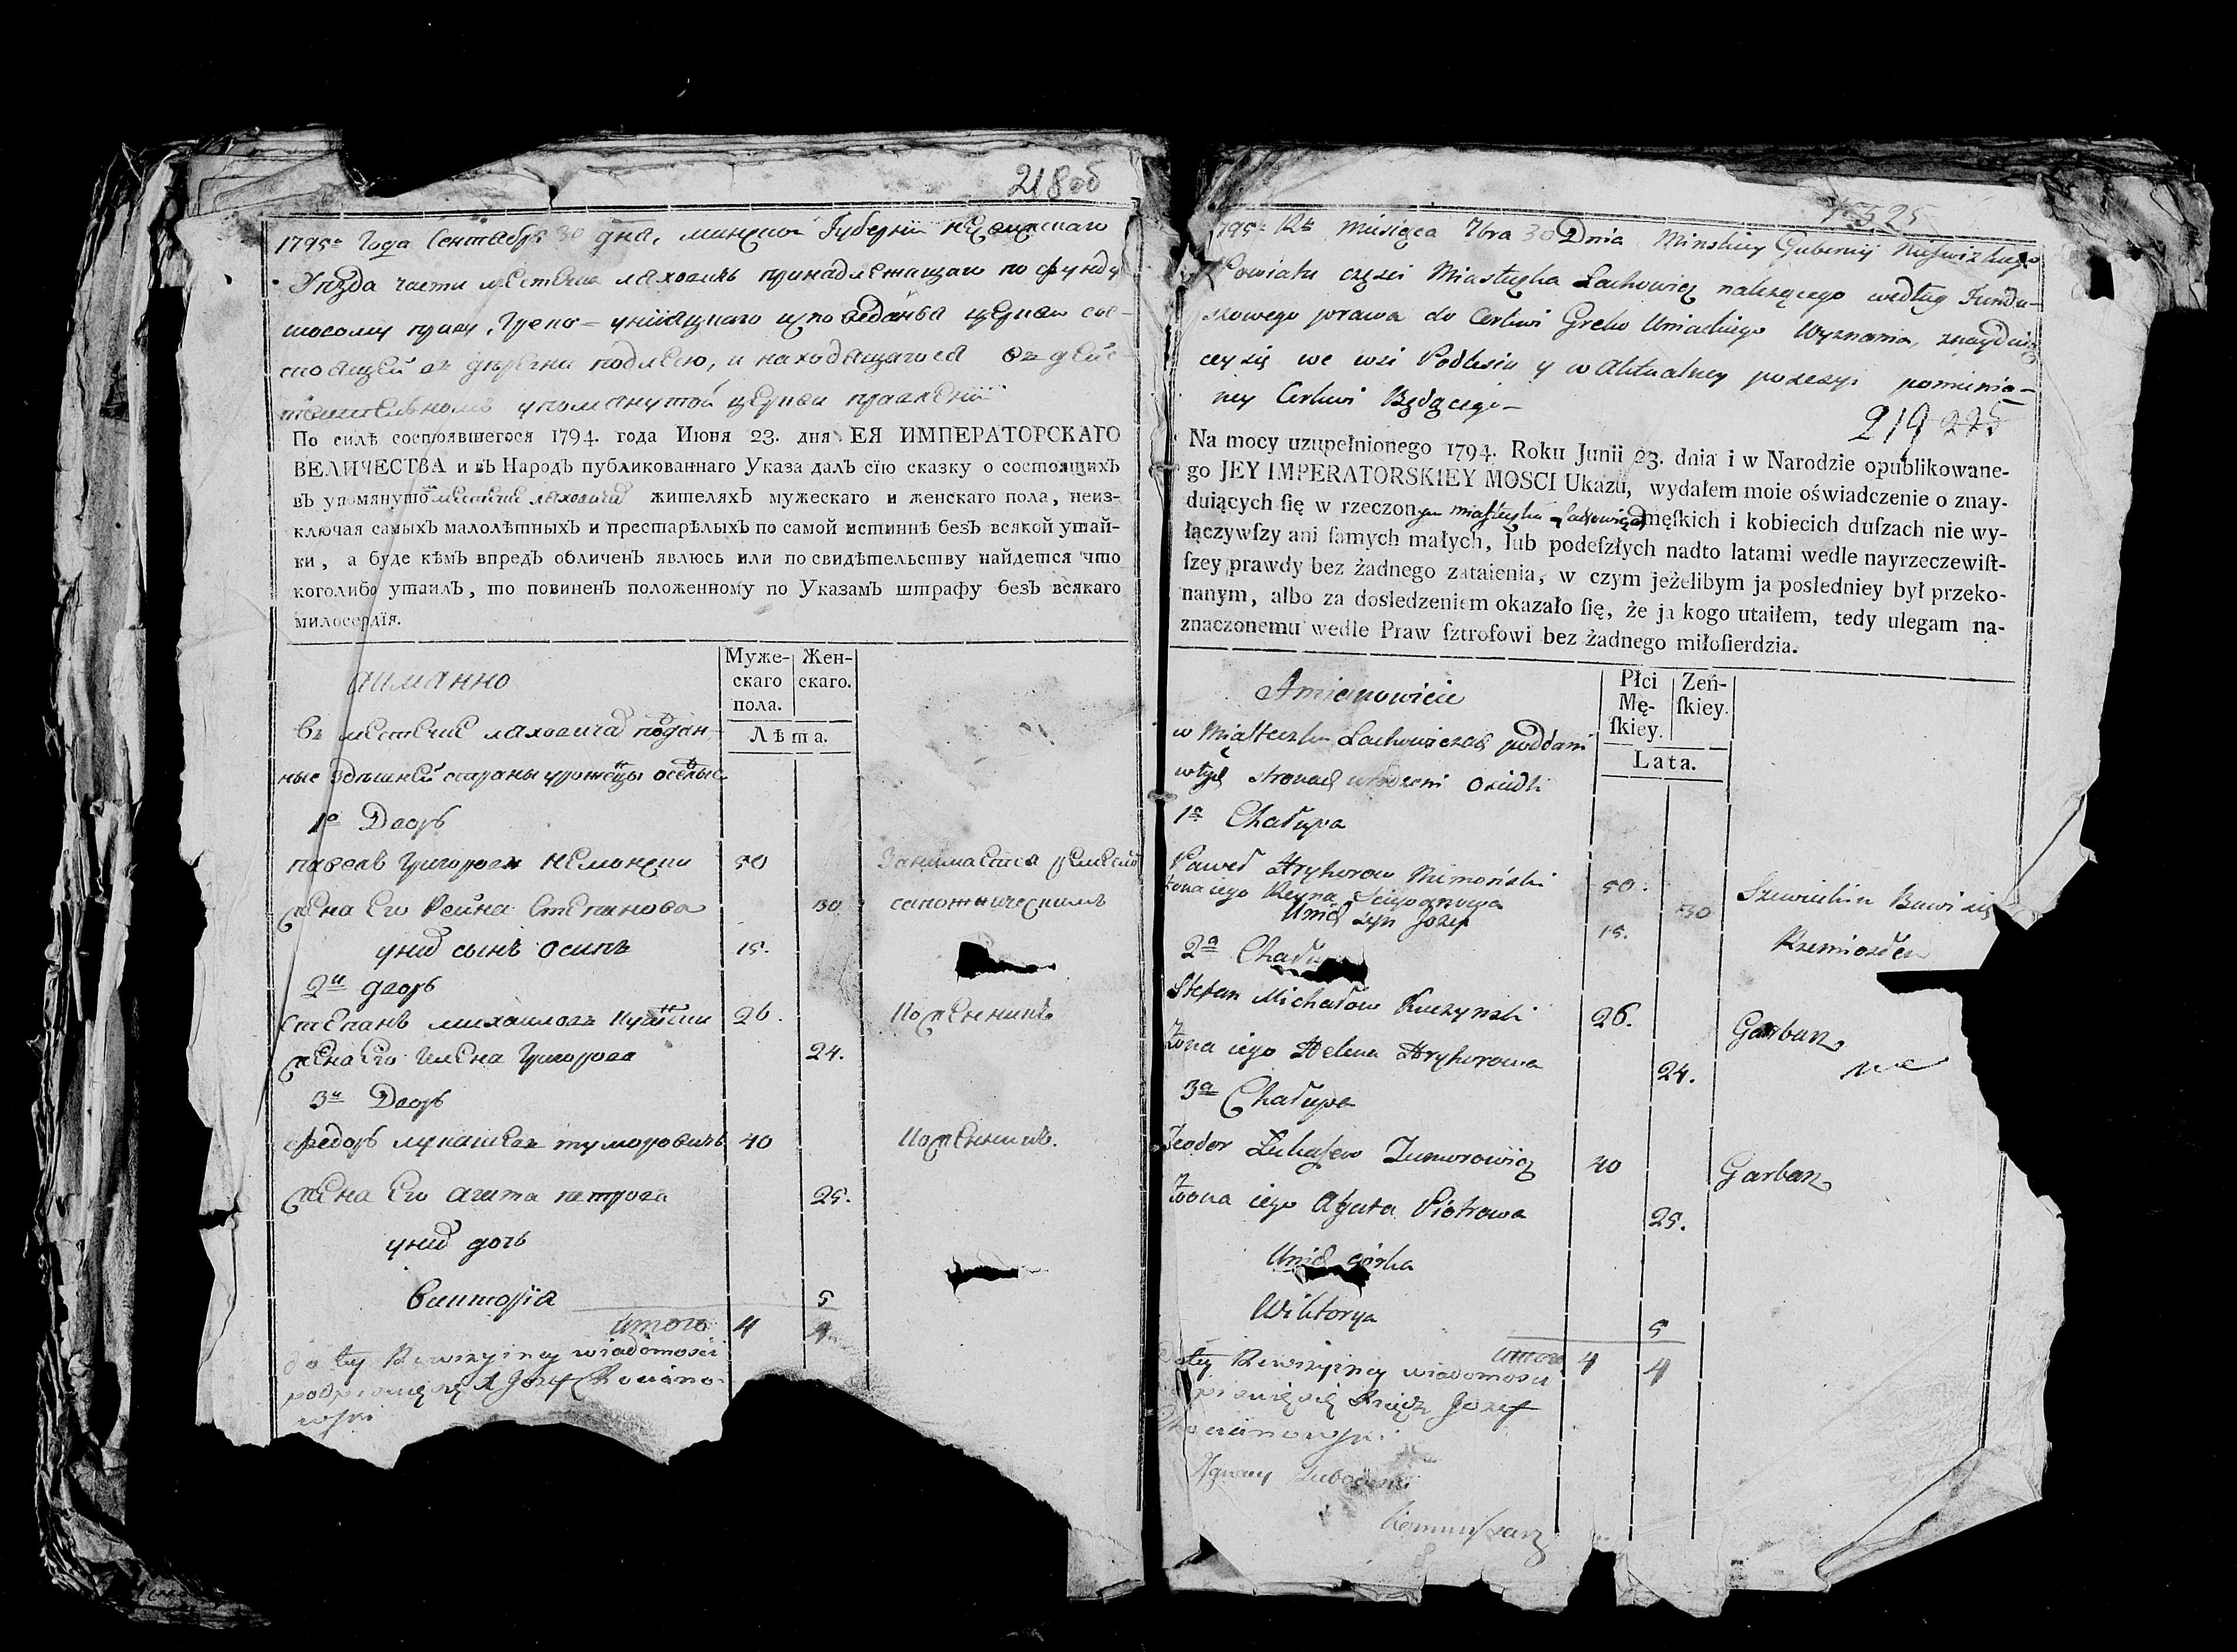 218об
1795го Года Сентября 30 дня, минской Губернии несвижскаго
Уезда части местечка ляховичь принадлежащаго по фунду
шовому праву, Греко-униацкаго исповеданьа церкви сос-
тоящей въ деревни подлесю, и находящагося въ дейс-
твительномъ упомянутой церкви правлении
По силѣ состоявшегося 1794. года Июня 23. дня ЕЯ ИМПЕРАТОРСКАГО
ВЕЛИЧЕСТВА и въ Народъ публикованнаго Указа далъ сїю сказку о состоящихъ
въ упомянутомъ местечке ляховичах жителяхъ мужескаго и женскаго пола, неиз-
ключая самыхъ малолѣтныхъ и престарѣлыхъ по самой истиннѣ безъ всякой утай-
ки, а буде кѣмъ впредь обличенъ явлюсь или по свидѣтельству найдется что
коголибо утаилъ, то повиненъ положенному по Указамъ штрафу безъ всякаго
милосердїя.
аимянно
Муже-скаго пола. Жен-скаго.
Лѣта.
въ местечке ляховичах поддан-
ные здешней стараны уроженцы оселые
1й Дворъ
павелъ Григоровъ Немонски 50 Занимается ремесло
жена Его Рейна Степанова 30 сапожническимъ
уних сынъ осипъ 15.
2й дворъ
Степанъ михайловъ 26. Кожевникъ
жена его Илена Григорова 24.
3й Дворъ
федоръ лукашевъ туморовичь 40 Кожевникъ.
жена Его агата петрова 25.
уних дочь
Викторія 5
итого 4 4
do tey Rewizyiney wiadomości
podpisuię się X Jozef
wski
525
1795. Rku Miesiąca 7bra 30 Dnia Minskiey Gubernij Nieswizkiego
Powiatu części Miasteczka Lachowicz należącego według Fundu-
szowego prawa do Cerkwi Greko Uniackiego Wyznania, znayduią
cey się we wsi Podlesiu y w Aktualney possesyi pomienio-
ney Cerkwi Będącego-
219 225
Na mocy uzupełnionego 1794. Roku Junii 23. dnia i w Narodzie opublikowane-
go JEY IMPERATORSKIEY MOSCI Ukazu, wydałem moie oświadczenie o znay-
duiących ſię w rzeczonym miasteczku Lachowiczach męſkich i kobiecich duſzach nie wy-
łączywſzy ani ſamych małych, lub podeſzłych nadto latami wedle nayrzeczewiſt-
ſzey prawdy bez żadnego zataienia, w czym jeżelibym ja posledniey był przeko-
nanym, albo za dosledzeniem okazało ſię, że ja kogo utaiłem, tedy ulegam na-
znaczonemu wedle Praw ſztrofowi bez żadnego miłoſierdzia.
Amianowicie
Płci Mę-ſkiey. Zeń-ſkiey.
Lata.
w Miasteczku Lachowiczach poddani
w tych stronach urodzeni osiedli
1a Chałupa
Paweł Hryhorow Nimoński 50. Szewieckim Bawi się
Żona iego Reyna Sciepanowa 30
Unich syn Jozef 15. Rzemiosłem
2a Chałupa
Stefan Michałow Kuczynski 26. Garbarz
Żona iego Helena Hryhorowa 24.
3a Chałupa
Teodor Łukaſzew Tumorowicz 40 Garbarz
Żona iego Agata Piotrowa 25.
Unich córka
Wiktorya 5
итого 4 4
do tey Rewizyiney wiadomości
podpisuię się Xiądz Jozef
Ignacy
Kommissarz